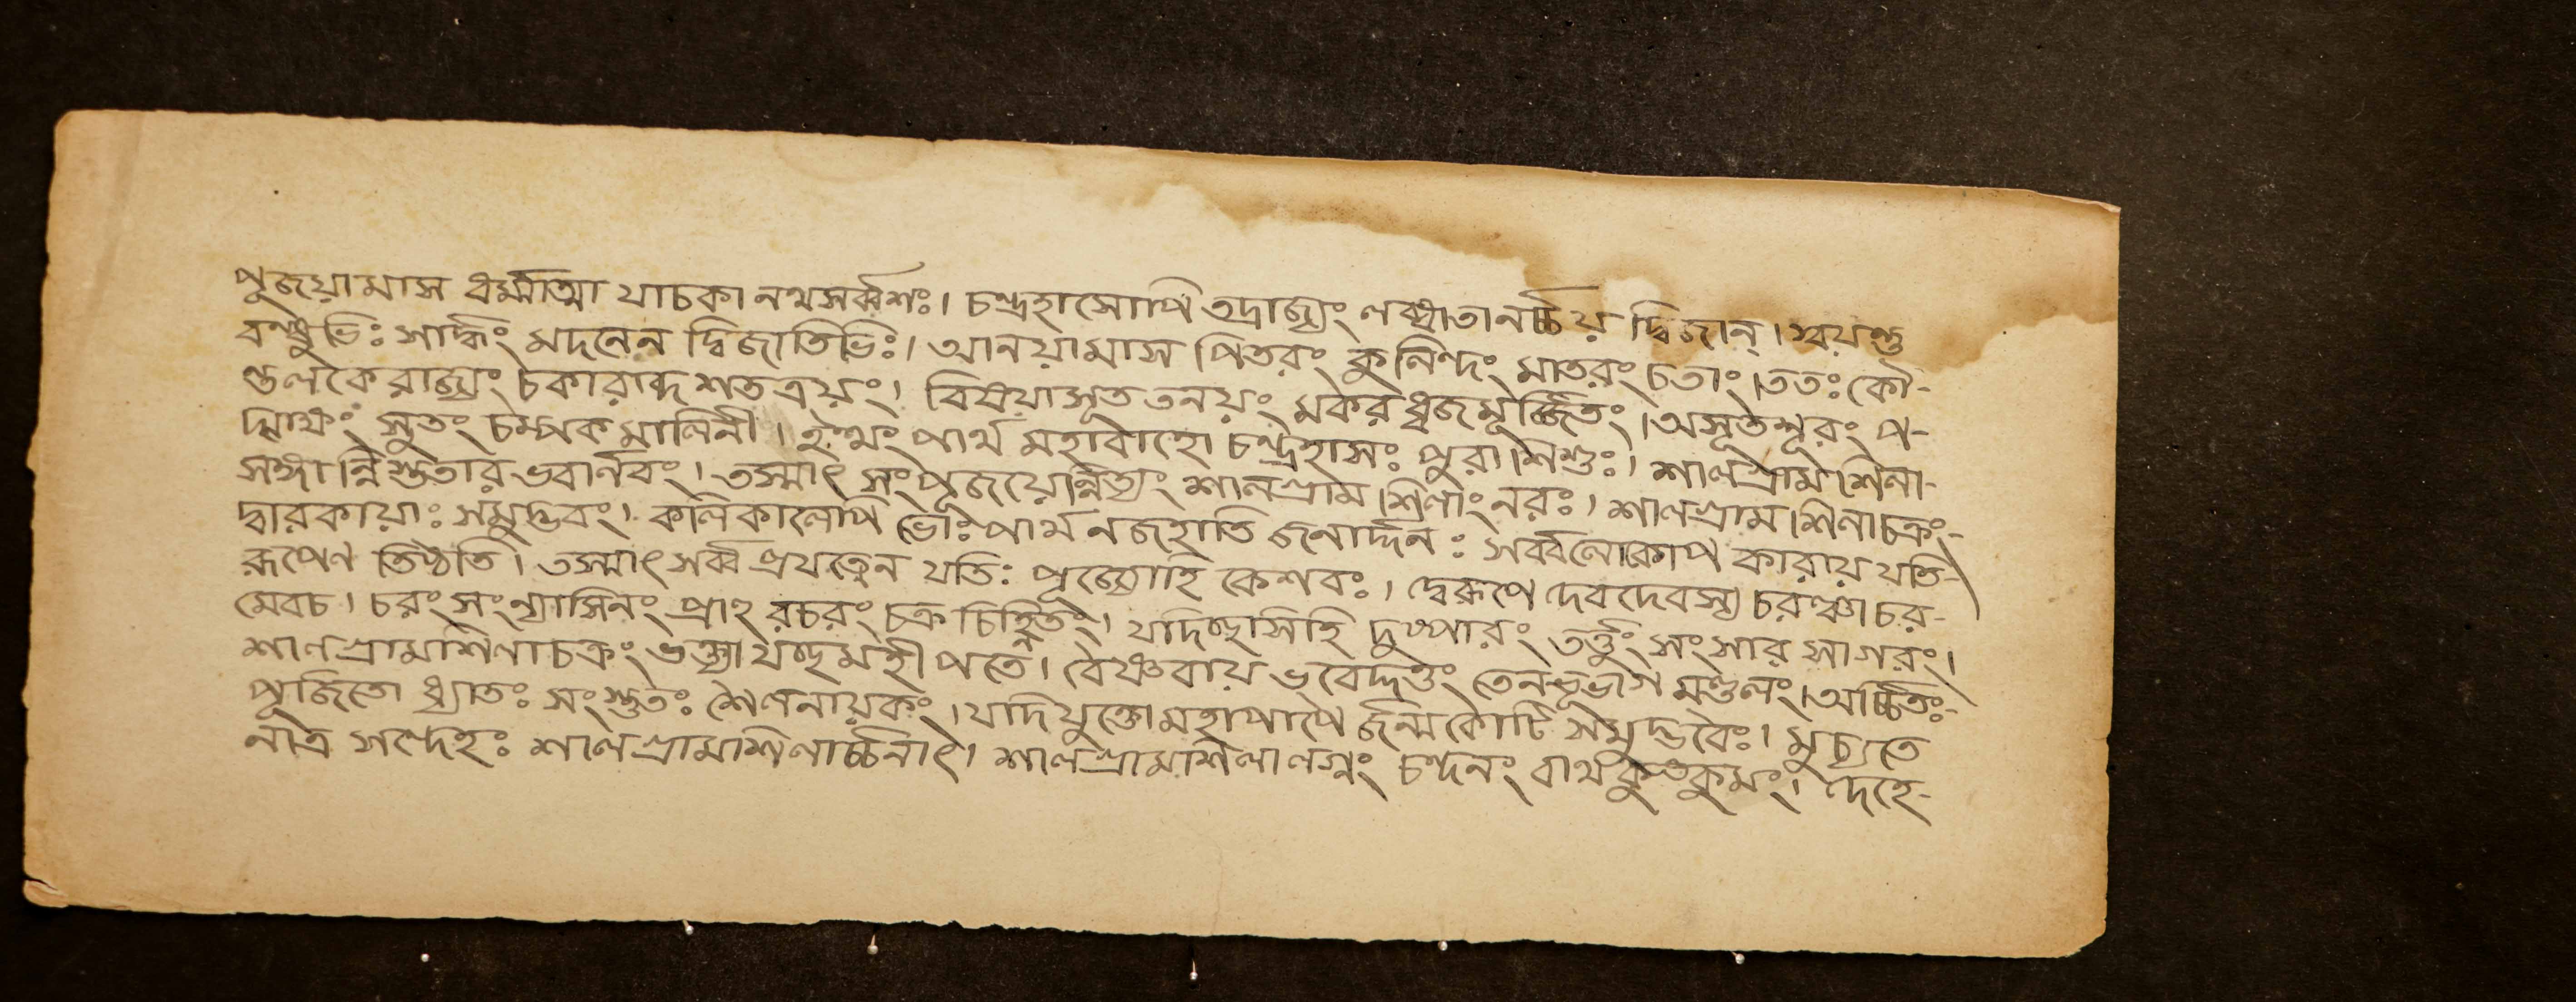 পূজয়ামাস ধর্ম্মাত্মা যাচকানথসর্ব্বশঃ। চন্দ্রহাসোপি তদ্রাজ্যং লব্ধ্বাতানর্চ্চয় দ্বিজান্। স্বয়ন্তু
বন্ধুভিঃ সার্দ্ধং মদনেন দ্বিজাতিভিঃ। আনয়ামাস পিতরং কুলিন্দং মাতরং চতাং। ততঃ কৌ-
ণ্ডলকেরাজ্যং চকারাব্দশতত্রয়ং। বিষয়াসূত তনয়ং মকরধ্বজমূর্জ্জিতং। অসূতশূরং প-
দ্মাক্ষং সুতং চম্পকমালিনী। ইত্থং পার্থ মহাবাহো চন্দ্রহাসঃ পুরা শিশুঃ। শালগ্রামশিলা-
সঙ্গান্নিস্ততার ভবার্ণবং। তস্মাৎ সংপূজয়েন্নিত্যং শালগ্রাম শিলাংনরঃ। শালগ্রামশিলাচক্রং-
দ্বারকায়াঃ সমুদ্ভবং। কলিকালেপি ভোঃ পার্থ নজহাতি জনার্দ্দনঃ সর্ব্বলোকোপকারায় যতি-
রূপেণ তিষ্ঠতি। তস্মাৎ সর্ব্ব প্রযত্নেন যতিঃ পূজ্যোহি কেশবঃ। দ্বেরূপে দেবদেবস্য চরঞ্চাচর-
মেবচ। চরং সংন্যাসিনং প্রাহু রচরং চক্র চিহ্নিতং। যদিচ্ছসিহি দুষ্পারং তর্ত্তুং সংসার সাগরং।
শালগ্রামশিলাচক্রং ভক্ত্যা যচ্ছমহীপতে। বৈষ্ণবায় ভবেদ্দত্তং তেনভূভাগ মণ্ডলং। অর্চ্চিতঃ-
পূজিতো ধ্যাতঃ সংস্তুতঃ শৈলনায়কঃ। যদিযুক্তোমহাপাপৈ র্জন্মকোটি সমুদ্ভবৈঃ। মুচ্যতে
নাত্র সন্দেহঃ শালগ্রামশিলার্চ্চনাৎ। শালগ্রামশিলালগ্নং চন্দনং বাথকুঙ্কুমং। দেহে-